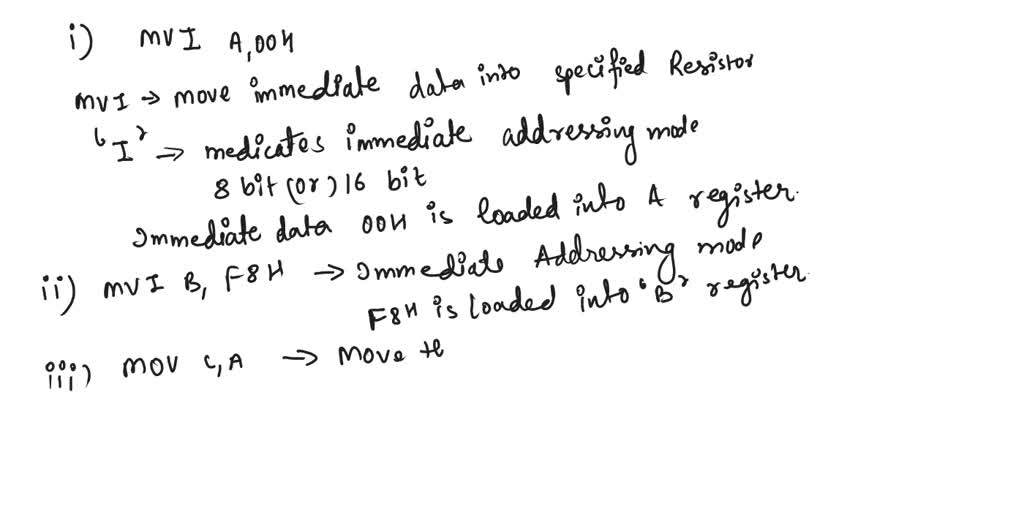 i) MVI A,00H
MVI → move immediate data into specified Resistor
'I' → medicates immediate addressing mode
8 bit (or) 16 bit
Immediate data 00H is loaded into A register.
ii) MVI B, F8H → Immediate Addressing mode
F8H is loaded into 'B' register.
iii) MOV C,A → Move te